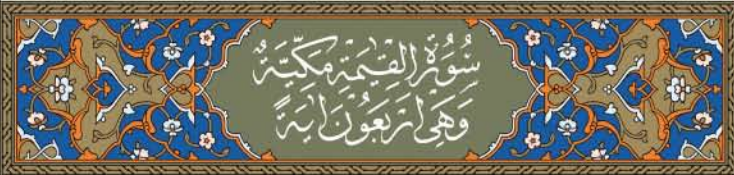 سُورَةُ الْقِيٰمَةِ مَكِّيَّةٌ
وَهِيَ اَرْبَعُونَ اٰيَةً